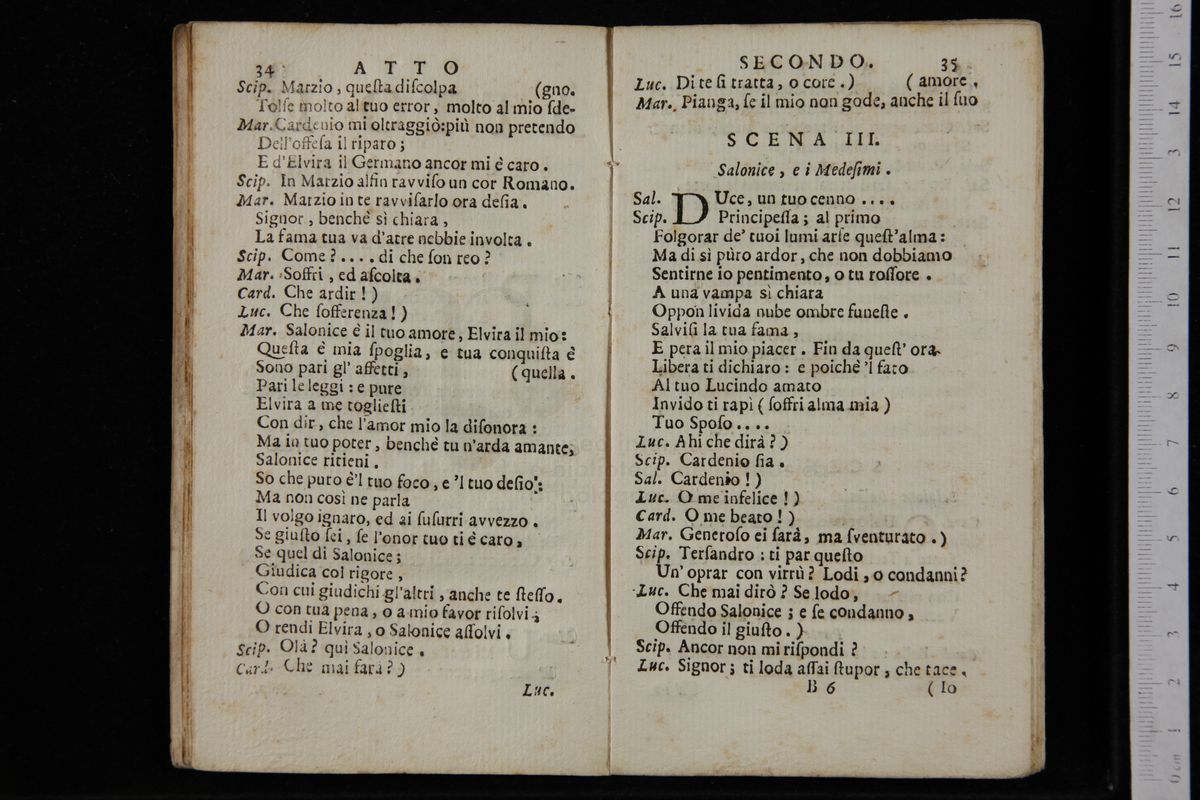 34 ATTO
Scip. Marzio, queſta diſcolpa (gno.
Tolſe molto al tuo error, molto al mio ſde-
Mar. Cardenio mi oltraggiò: più non pretendo
Dell'offeſa il riparo;
E d'Elvira il Germano ancor mi è caro.
Scip. In Marzio alfin ravviſo un cor Romano.
Mar. Marzio in te ravviſarlo ora deſia.
Signor, benchè sì chiara,
La fama tua va d'atre nebbie involta.
Scip. Come?.... di che ſon reo?
Mar. Soffri, ed aſcolta.
Card. Che ardir!)
Luc. Che ſofferenza!)
Mar. Salonice è il tuo amore, Elvira il mio:
Queſta è mia ſpoglia, e tua conquiſta è
Sono pari gl' affetti, (quella.
Pari le leggi: e pure
Elvira a me toglieſti
Con dir, che l'amor mio la diſonora:
Ma in tuo poter, benchè tu n'arda amante,
Salonice ritieni.
So che puro è'l tuo foco, e 'l tuo deſio:
Ma non così ne parla
Il volgo ignaro, ed ai ſuſurri avvezzo.
Se giuſto ſei, ſe l'onor tuo ti è caro,
Se quel di Salonice;
Giudica col rigore,
Con cui giudichi gl'altri, anche te ſteſſo.
O con tua pena, o a mio favor riſolvi;
O rendi Elvira, o Salonice aſſolvi.
Scip. Olà? qui Salonice.
Card. Che mai ſarà?)
Luc.
SECONDO. 35
Luc. Di te ſi tratta, o core.) (amore,
Mar. Pianga, ſe il mio non gode, anche il ſuo
SCENA III.
Salonice, e i Medeſimi.
Sal. DUce, un tuo cenno....
Scip. Principeſſa; al primo
Folgorar de' tuoi lumi arſe queſt'alma:
Ma di sì puro ardor, che non dobbiamo
Sentirne io pentimento, o tu roſſore.
A una vampa sì chiara
Oppon livida nube ombre funeſte.
Salviſi la tua fama,
E pera il mio piacer. Fin da queſt' ora
Libera ti dichiaro: e poichè 'l fato
Al tuo Lucindo amato
Invido ti rapì (ſoffri alma mia)
Tuo Spoſo....
Luc. Ahi che dirà?)
Scip. Cardenio ſia.
Sal. Cardenio!)
Luc. O me infelice!)
Card. O me beato!)
Mar. Generoſo ei ſarà, ma ſventurato.)
Scip. Terſandro: ti par queſto
Un' oprar con virrù? Lodi, o condanni?
Luc. Che mai dirò? Se lodo,
Offendo Salonice; e ſe condanno,
Offendo il giuſto.)
Scip. Ancor non mi riſpondi?
Luc. Signor; ti loda aſſai ſtupor, che tace,
B 6 (Io
0 cm 1 2 3 4 5 6 7 8 9 10 11 12 13 14 15 16